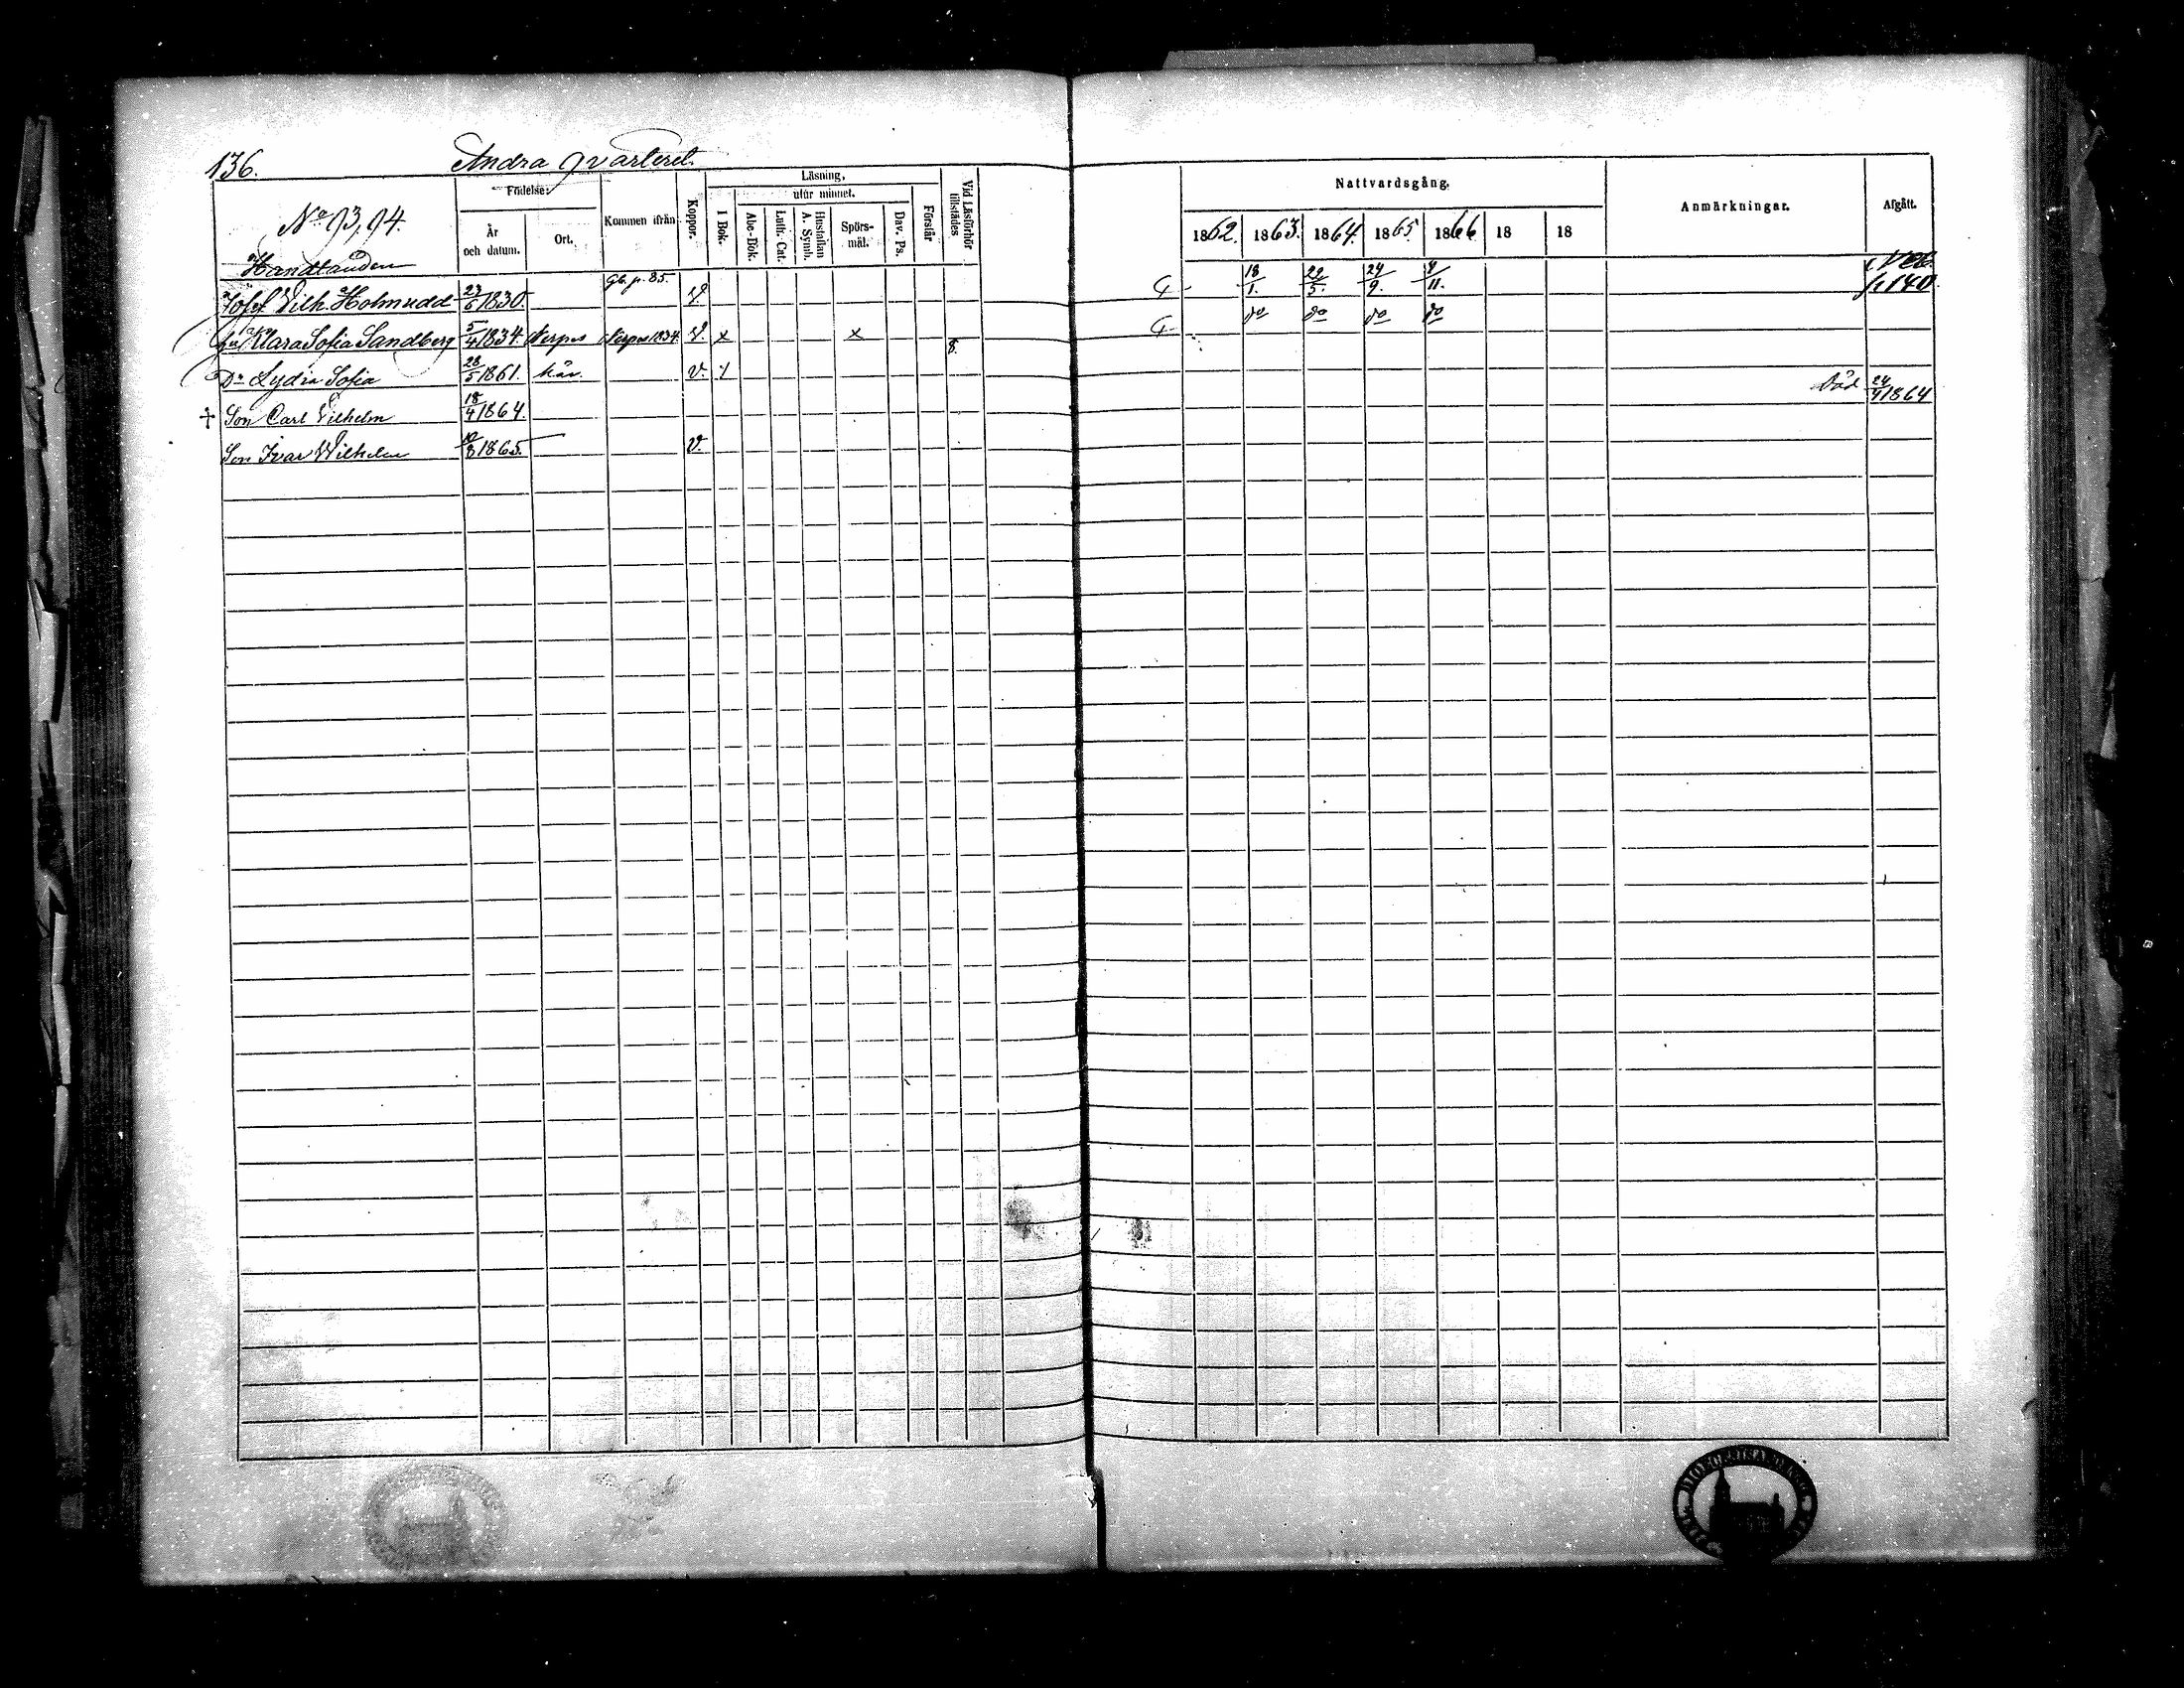 136. Andra qvarteret.
No 93, 94.
Födelse:
År och datum.
Ort.
Kommen ifrån
Koppor.
Läsning,
I Bok.
utur minnet.
Abc-Bok.
Luth. Cat.
Hustaflan A. Symb.
Spörs-mål.
Dav. Ps.
Förstår
Vid Läsförhör tillstädes
Nattvardsgång.
1862. 1863. 1864. 1865. 1866 18 18
Anmärkningar.
Afgått.
Handlanden
Josef Vilh. Holmudd 23/6 1830. Gb. p. 85. v. G 18/1. 22/5. 24/9. 4/11. p 140.
hu Clara Sofia Sandberg 5/4 1834. Nerpes Nerpes 1834. v. x x G do do do do
8.
Dr Lydia Sofia 28/5 1861. här. v. 1
† Son Carl Vilhelm 18/4 1864. Död 24/4 1864
Son Ivar Wilhelm 10/8 1865. v.